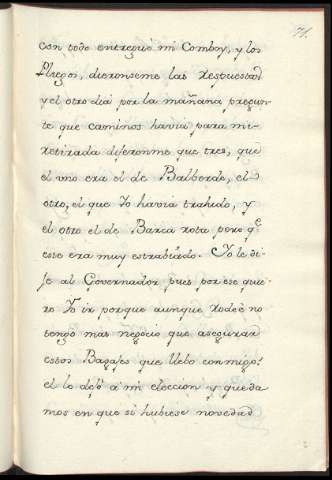 71.
con todo entregué mi Comboy, y los
Pliegos, dieronseme las respuestas
y el otro dia por la mañana pregun-
te que caminos havia para mi
retirada dijeronme que tres, que
el uno era el de Balberde, el
otro, el que Yo havia trahido, y
el otro el de Barca rota pero q.e
este era muy estrabiado. Yo le di-
je al Governador pues por ese quie-
ro Yo ir porque aunque rodeè no
tengo mas negocio que asegurar
estos Bagajes que llebo conmigo:
el lo dejò à mi eleccion y queda
mos en que si hubiese novedad